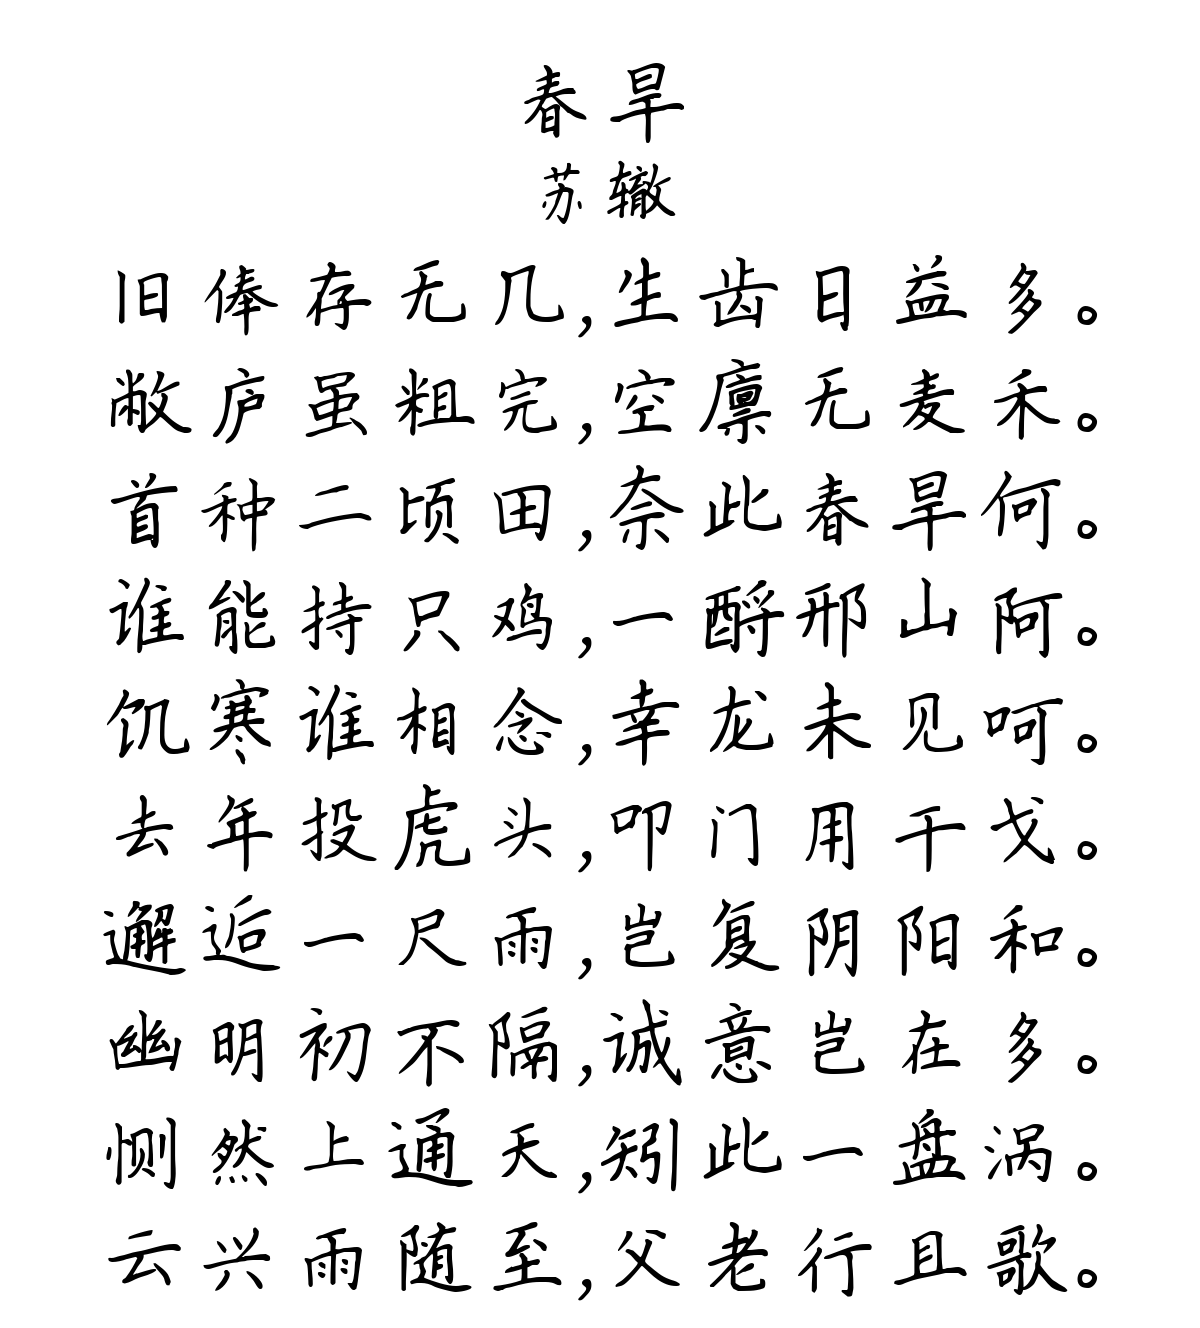 春旱
苏辙
旧俸存无几,生齿日益多。
敝庐虽粗完,空廪无麦禾。
首种二顷田,奈此春旱何。
谁能持只鸡,一酹邢山阿。
饥寒谁相念,幸龙未见呵。
去年投虎头,叩门用干戈。
邂逅一尺雨,岂复阴阳和。
幽明初不隔,诚意岂在多。
恻然上通天,矧此一盘涡。
云兴雨随至,父老行且歌。